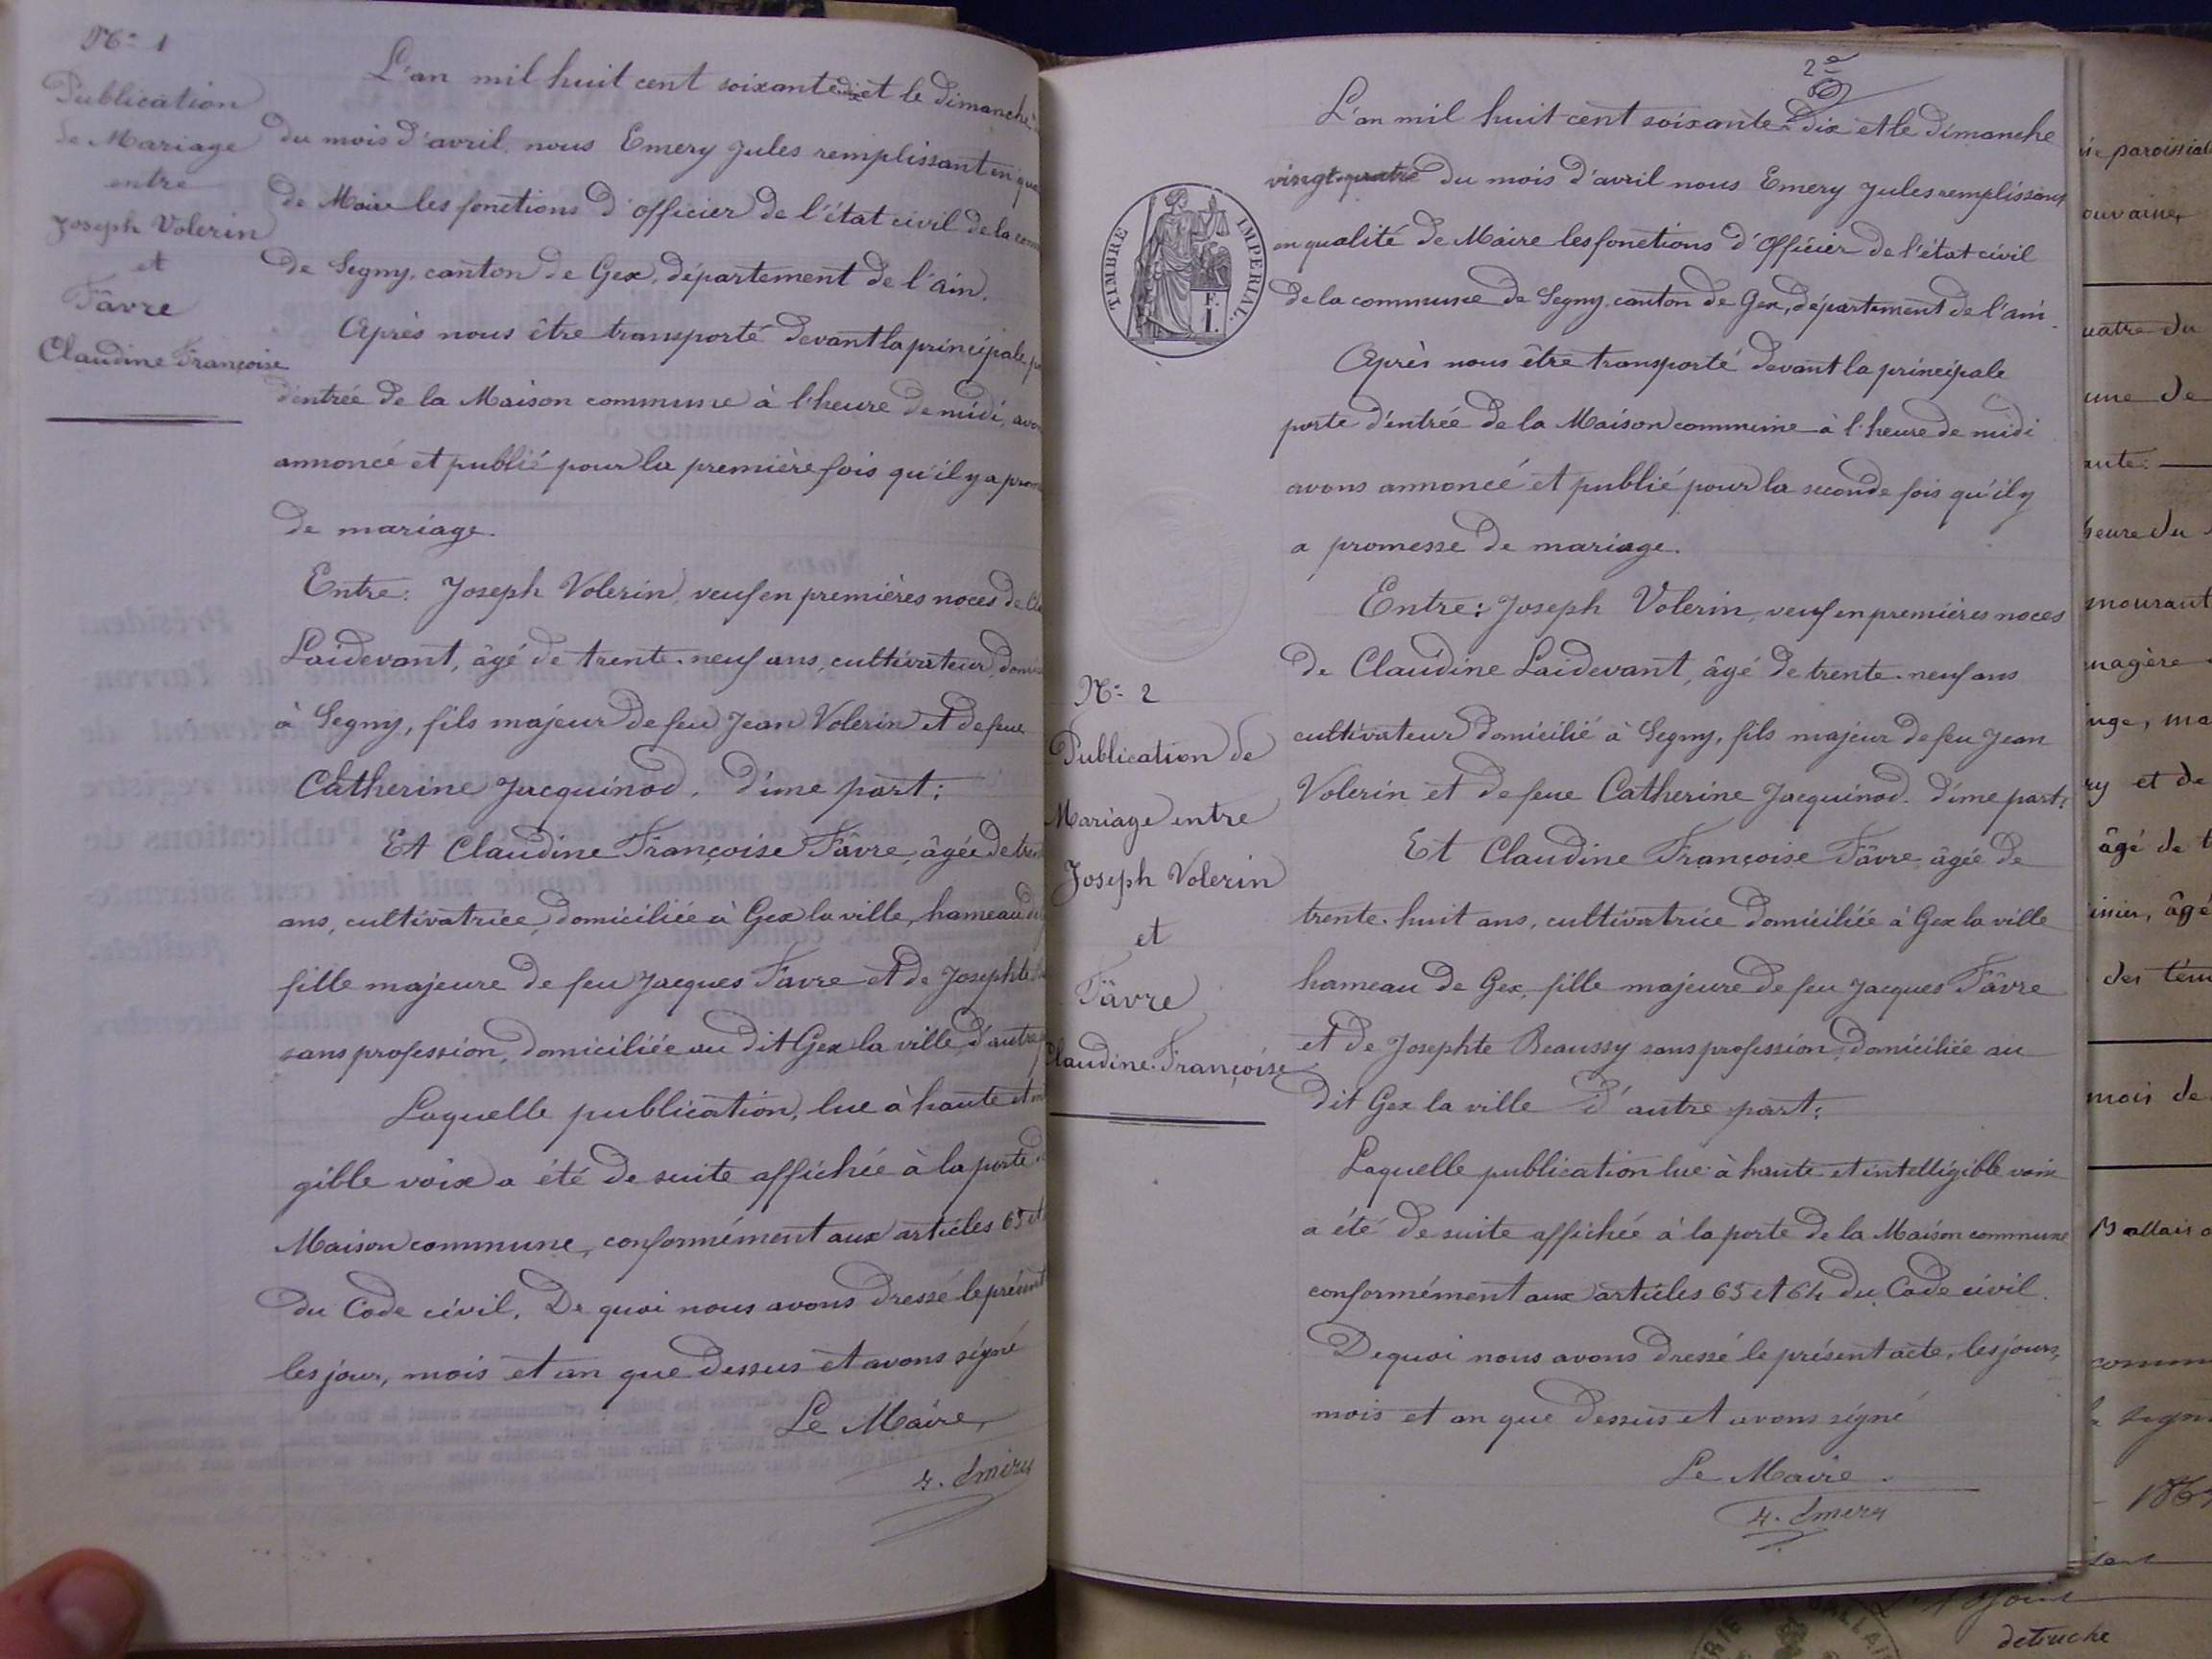 N° 1
Publication
de Mariage
entre
Joseph Volerin
et
Fâvre
Claudine Françoise
L'an mil huit cent soixante dix et le dimanche
du mois d'avril nous Emery Jules remplissant en qua
de Maire les fonctions d'officier de l'état civil de la com
de Segny, canton de Gex, département de l'ain.
Après nous être transporté devant la principale p
d'entrée de la Maison commune à l'heure de midi, avo
annoncé et publié pour la première fois qu'il y a prom
de mariage.
Entre: Joseph Volerin, veuf en premières noces de Cla
Laidevant, âgé de trente-neuf ans, cultivateur, domi
à Segny, fils majeur de feu Jean Volerin et de feue
Catherine Jacquinod, d'une part;
Et Claudine Françoise Fâvre, âgée de tren
ans, cultivatrice, domiciliée à Gex la ville, hameau
fille majeure de feu Jacques Favre et de Josephte
sans profession, domiciliée au dit Gex la ville, d'autre
Laquelle publication, lue à haute et
gible voix a été de suite affichée à la porte
Maison commune, conformément aux articles 63 et
du Code civil. De quoi nous avons dressé le présent
les jour, mois et an que dessus et avons signé
Le Maire,
J. Emery
2e
L'an mil huit cent soixante-dix et le dimanche
vingt-quatre du mois d'avril nous Emery Jules remplissant
en qualité de Maire les fonctions d'Officier de l'état civil
de la commune de Segny, canton de Gex, département de l'ain.
Après nous être transporté devant la principale
porte d'entrée de la Maison commune à l'heure de midi
avons annoncé et publié pour la seconde fois qu'il y
a promesse de mariage.
Entre: Joseph Volerin, veuf en premières noces
de Claudine Laidevant, âgé de trente-neuf ans
cultivateur domicilié à Segny, fils majeur de feu Jean
Volerin et de feue Catherine Jacquinod. d'une part;
Et Claudine Françoise Fâvre âgée de
trente-huit ans, cultivatrice domiciliée à Gex la ville
hameau de Gex, fille majeure de feu Jacques Fâvre
et de Josephte Beaussy sans profession, domiciliée au
dit Gex la ville d'autre part;
Laquelle publication lue à haute et intelligible voix
a été de suite affichée à la porte de la Maison commune
conformément aux articles 63 et 64 du Code civil.
De quoi nous avons dressé le présent acte, les jours,
mois et an que dessus et avons signé
Le Maire.
J. Emery
TIMBRE IMPERIAL.
E.
I.
N° 2
Publication de
Mariage entre
Joseph Volerin
et
Fâvre
Claudine Françoise
paroissial
uatre du
une de
heure du
mourant
nagère
uge, ma
ry et de
âgé de t
âgé
des tém
mois de
Ballais
comm
sign
detruche